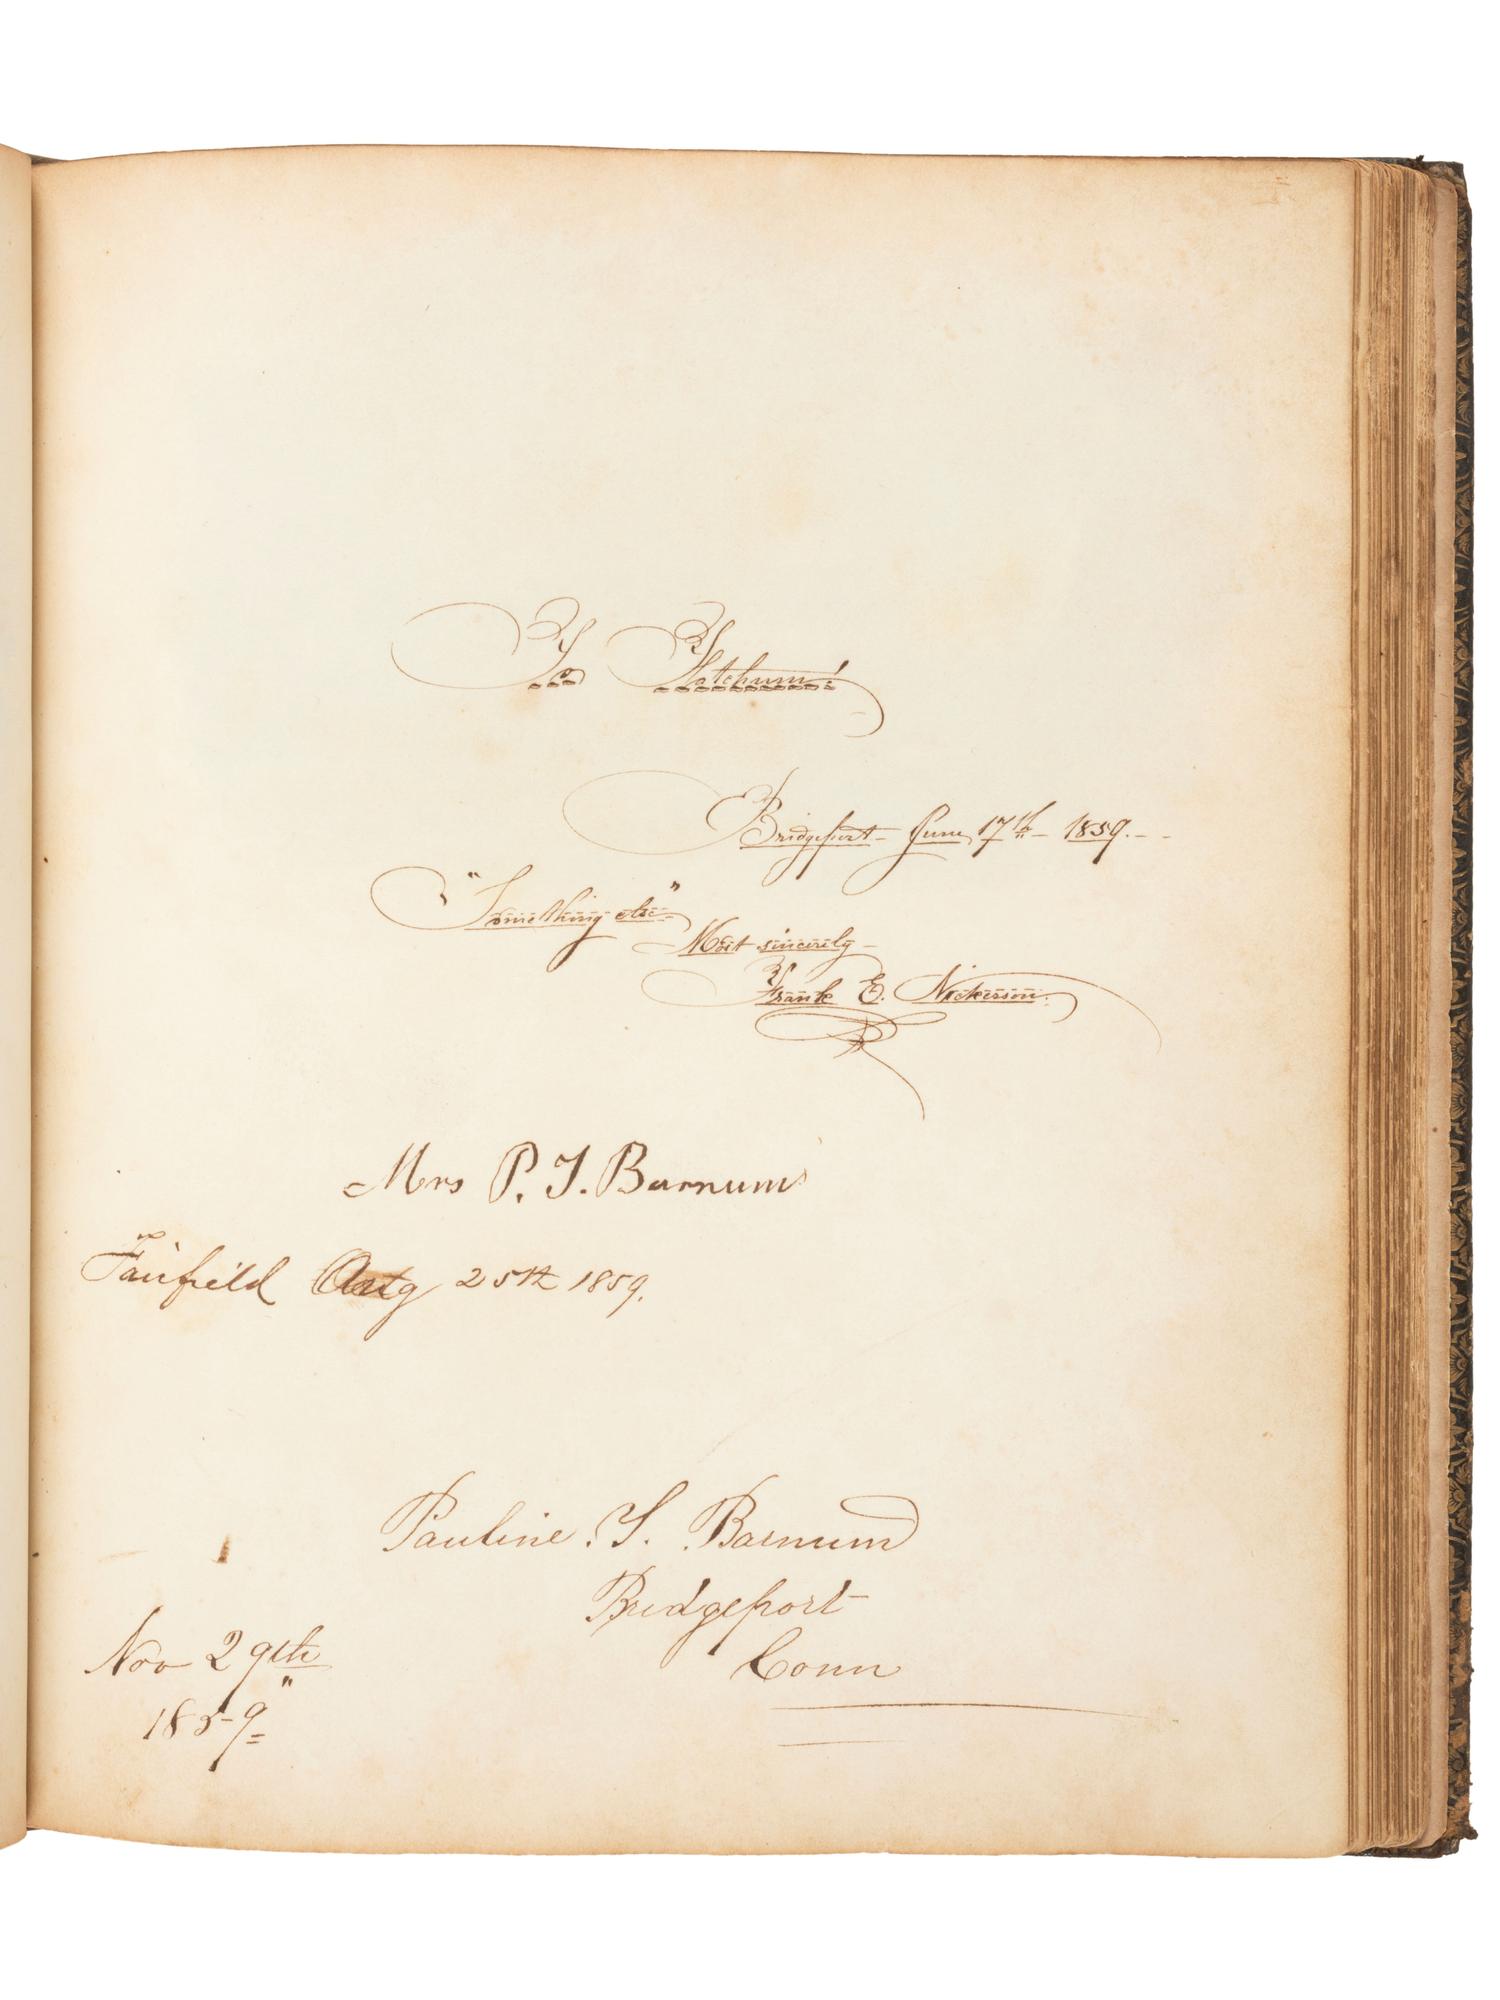 To Ketchum!
Bridgeport June 17th 1859.
"Something else"
Most sincerely
Frank E. Nickerson.
Mrs P. T. Barnum
Fairfield Aug 25th 1859.
Pauline. T. Barnum
Bridgeport
Conn
Nov 29th
1859